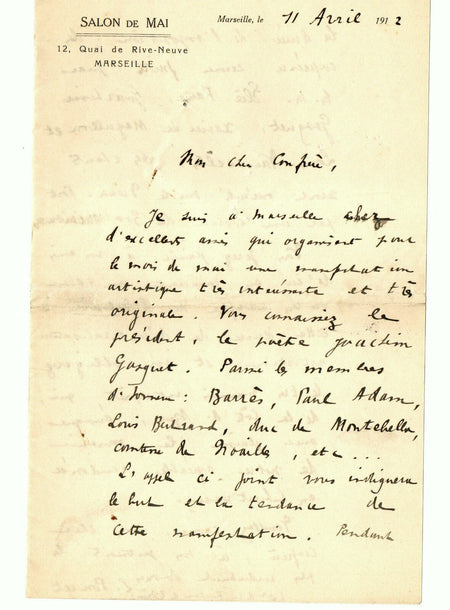 SALON DE MAI
12, Quai de Rive-Neuve
MARSEILLE
Marseille, le 11 Avril 1912
Mon cher Confrère,
Je suis à marseille chez
d'excellents amis qui organisent pour
le mois de mai une manifestation
artistique très intéressante et très
originale. Vous connaissez le
président, le poète Joachim
Gasquet. Parmi les membres
d'honneur : Barrès, Paul Adam,
Louis Bertrand, duc de Montebello,
comtesse de Noailles, etc...
L'appel ci-joint vous indiquera
le but et la tendance de
cette manifestation. Pendant